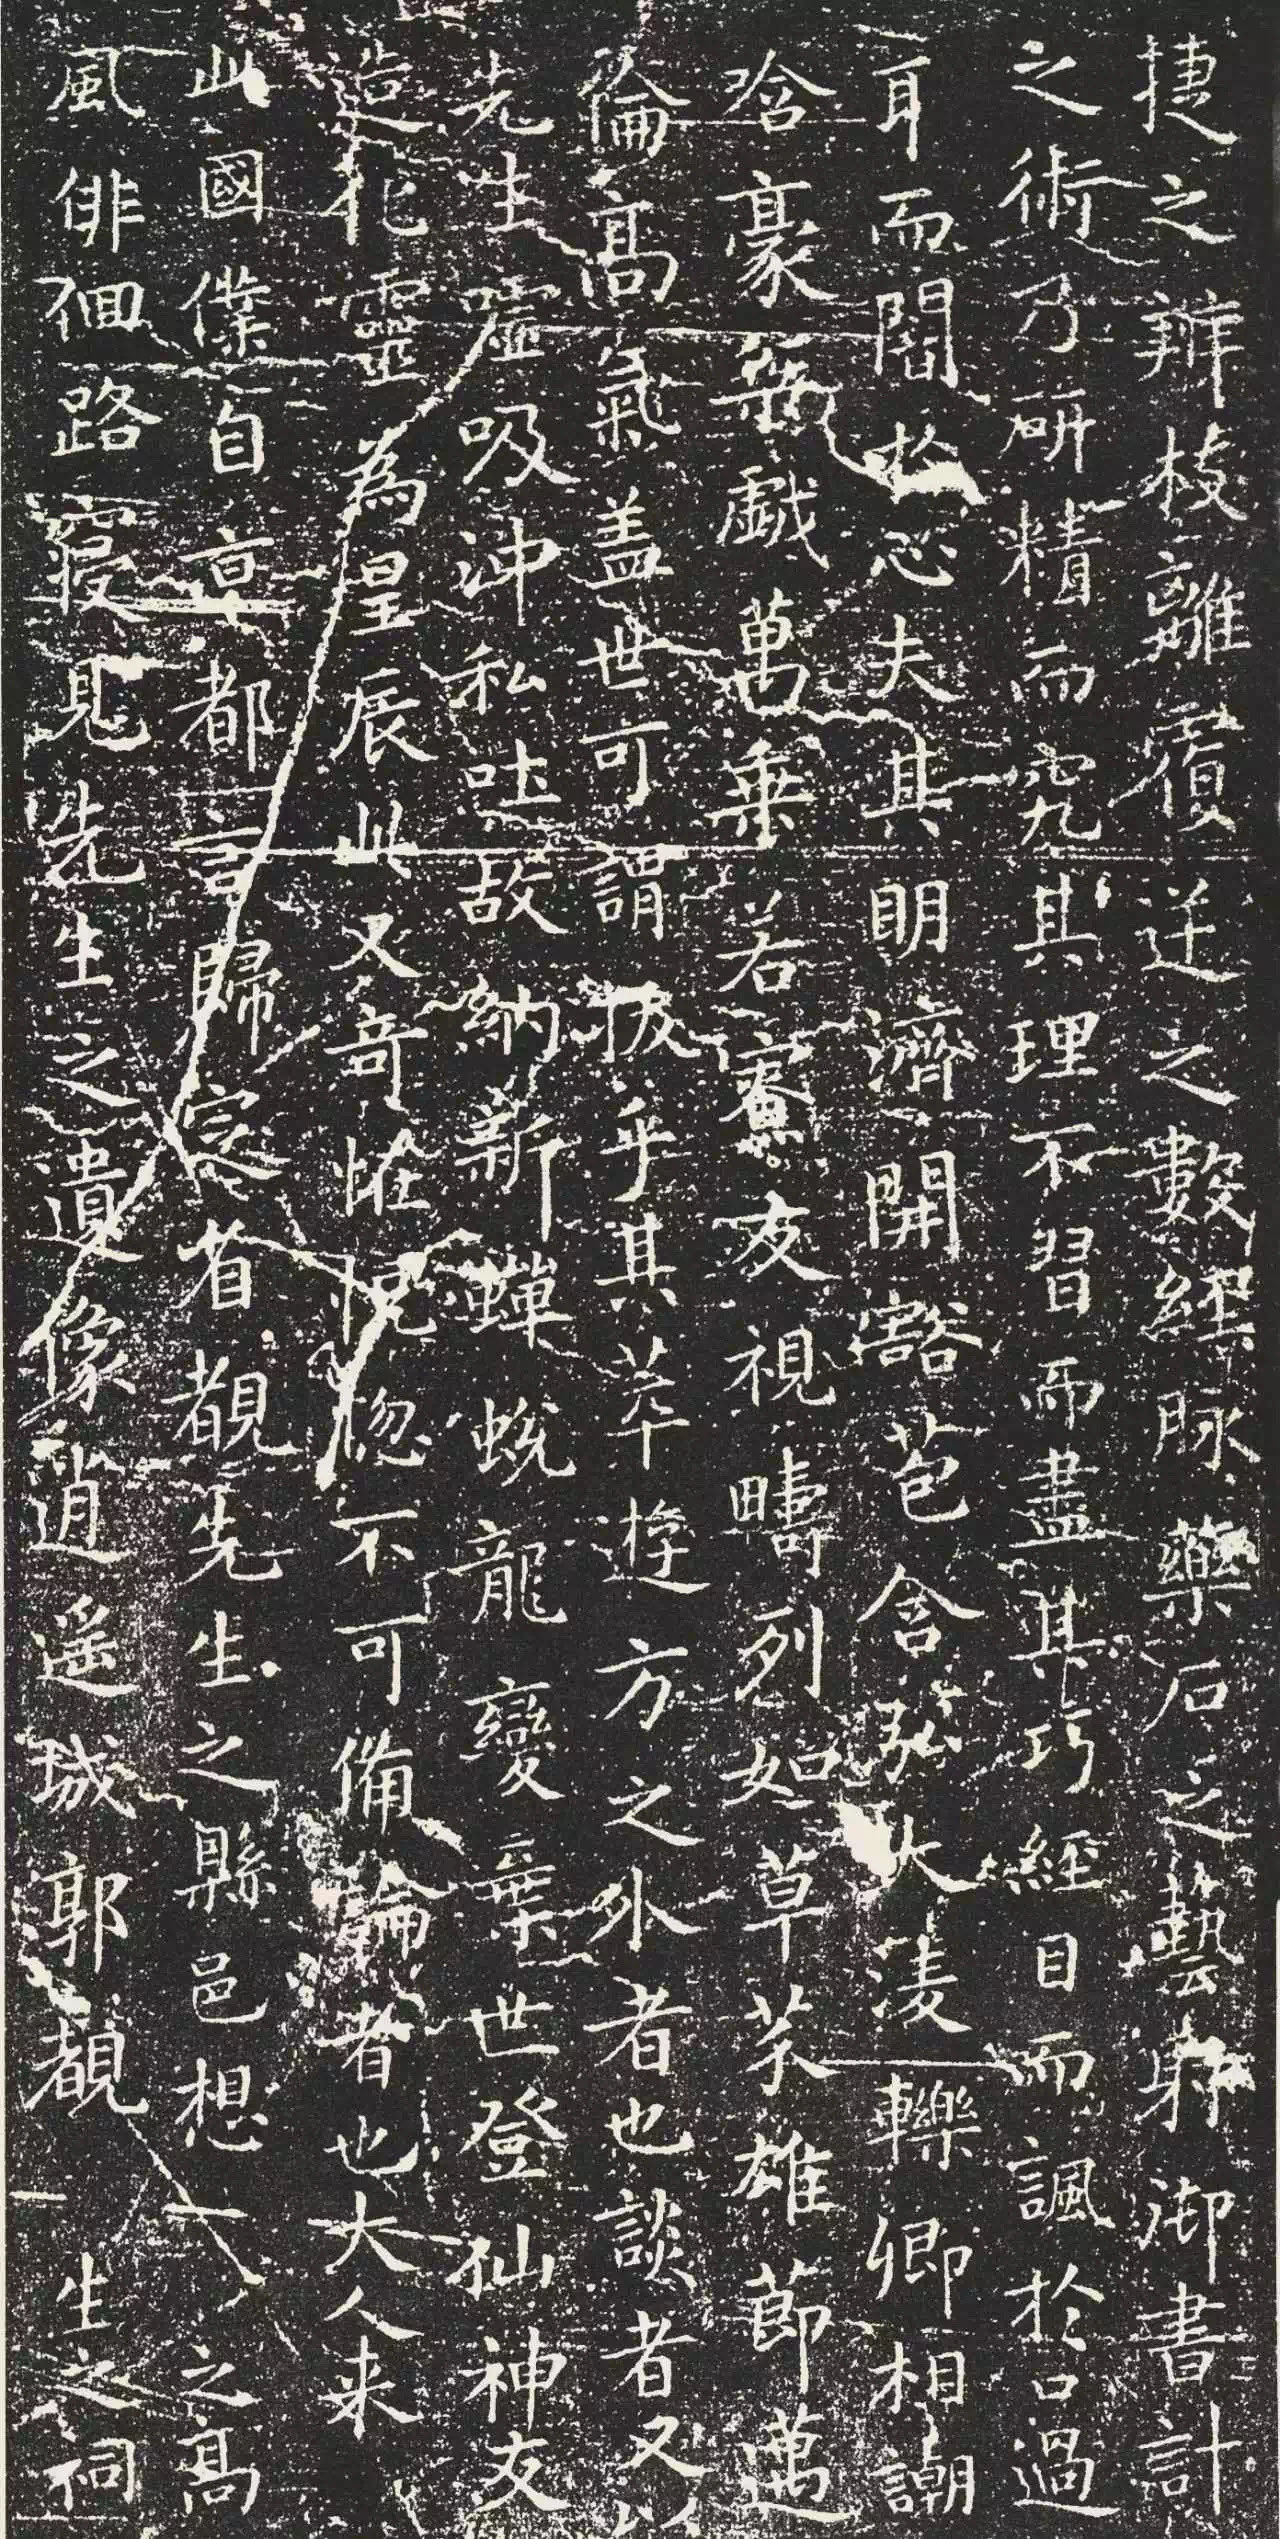 捷之辯枝離覆逆之數經脉藥石之藝射御書計
之術乃研精而究其理不習而盡其巧經目而諷於口過
耳而闇於心夫其明濟開豁苞含弘大淩轢卿相謿
啥豪桀戯萬乗若寮友視疇列如草芥雄節邁
倫高氣盖世可謂拔乎其萃遊方之外者也談者又以
先生嘘吸沖和吐故納新蟬蜕龍變棄世登仙神友
造化靈為星辰此又奇怪恍惚不可備論者也大人来
此國僕自京都言歸定省覩先生之縣邑想之高
風俳徊路寝見先生之遺像逍遥城郭覩生之祠